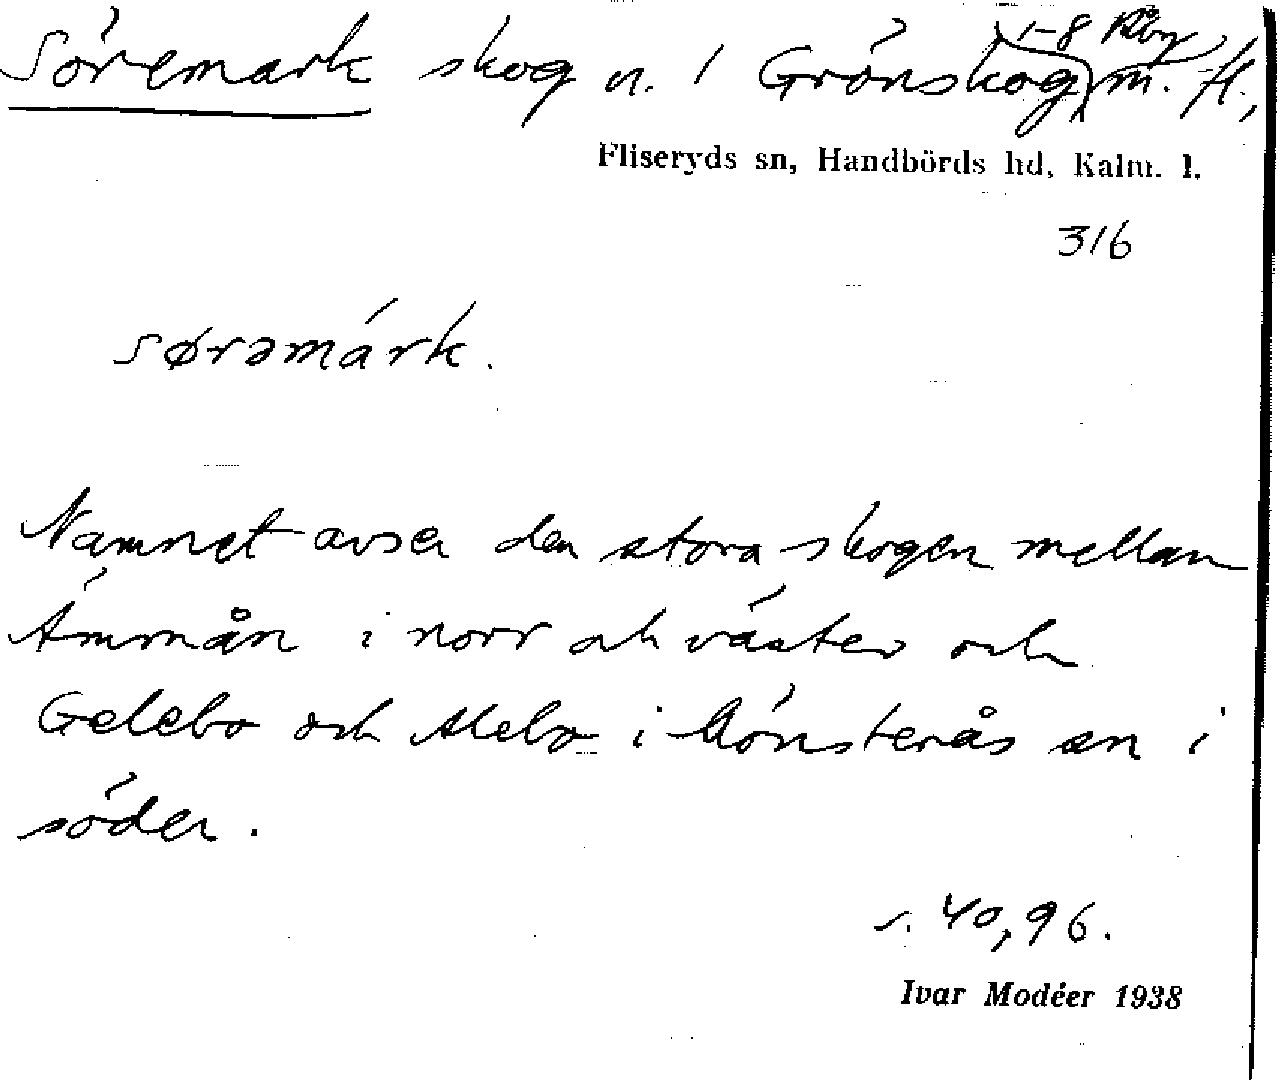 Söremark skog n. 1 Grönskog m. fl.,
Fliseryds sn, Handbörds hd, Kalm. l.
316
sørəmárk.
Namnet avser den stora skogen mellan
Ämmån i norr och väster och
Gelebo och Alebo i Mönsterås sn i
söder.
s. 40, 96.
Ivar Modéer 1938